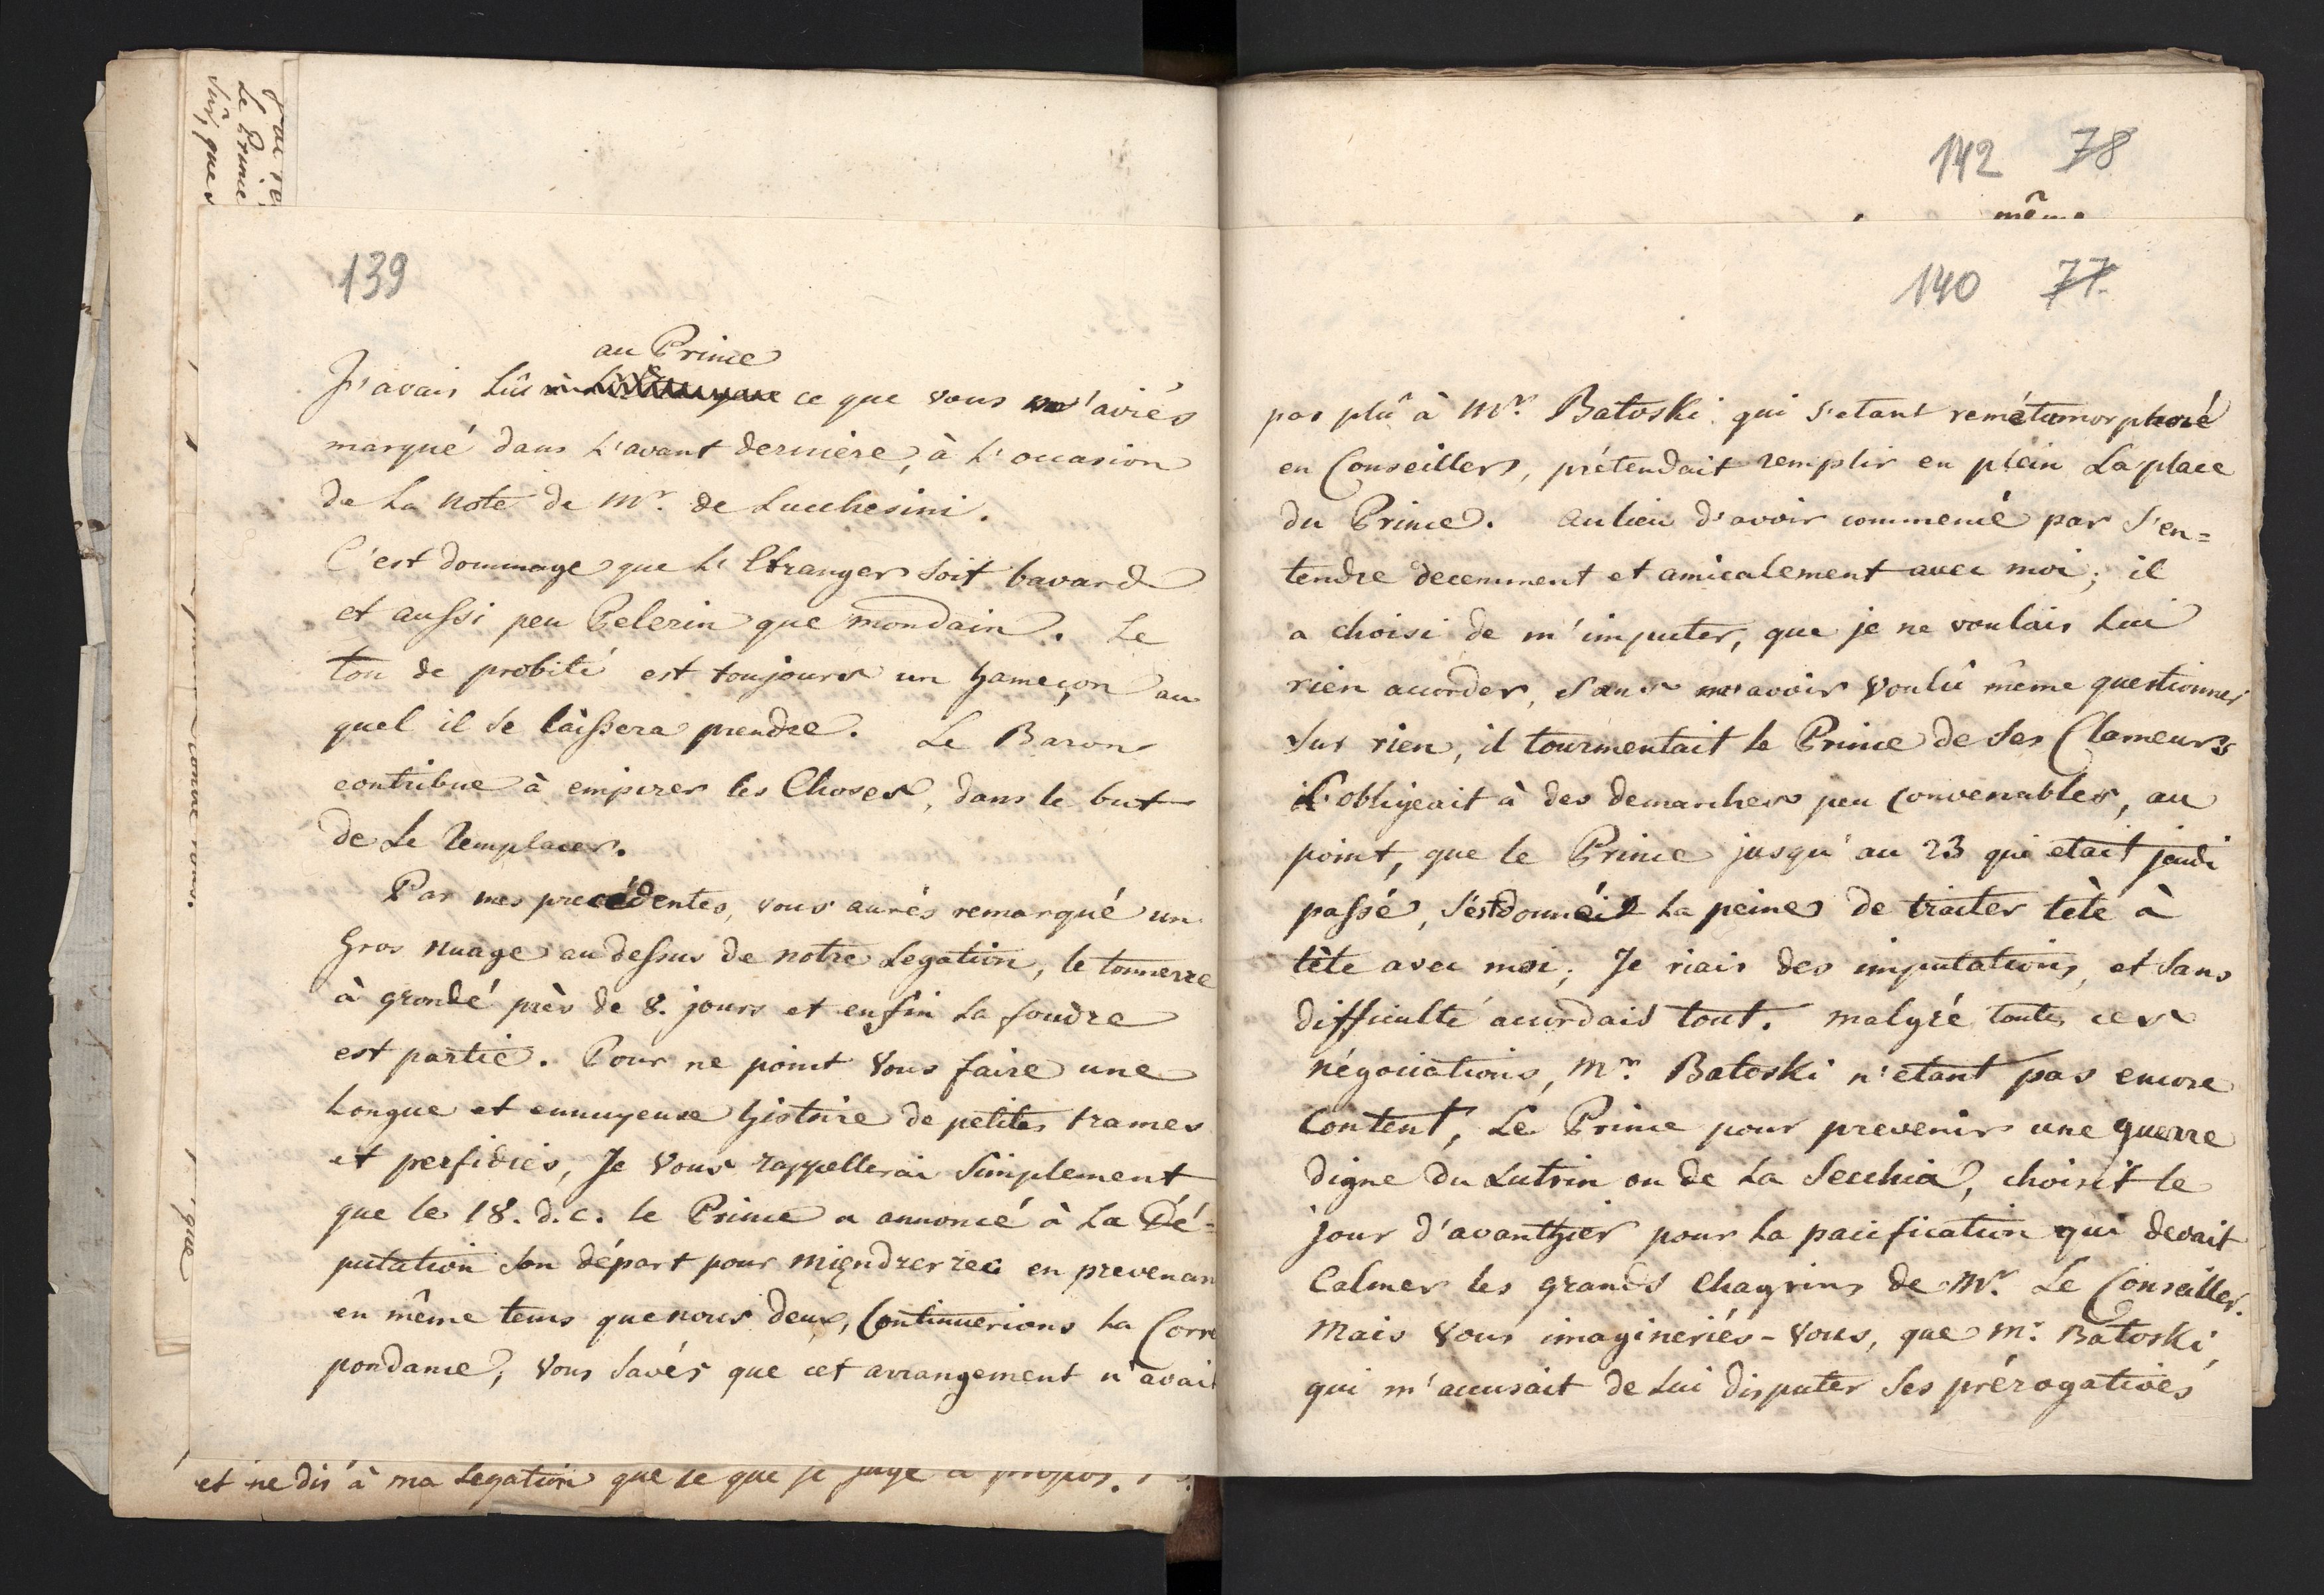 139
au Prince
J'avais lû ce que vous m'aviés
marqué dans l'avant derniere, à l'occasion
de la note de Mr. de Lucchesini.
C'est dommage que l'Etranger soit bavard
et aussi peu Pelerin que mondain. Le
ton de probité est toujours un hameçon au
quel il se laissera prendre. Le Baron
contribue à empirer les Choses, dans le but
de le remplacer.
Par mes precédentes, vous aurés remarqué un
gros nuage au dessus de notre Legation, le tonnerre
à grondé près de 8. jours et enfin la foudre
est partie. Pour ne point vous faire une
longue et ennuyeuse histoire de petites trames
et perfidies, Je vous rappellerai simplement
que le 18. d. c. le Prince a annoncé à la Dé-
putation son départ pour Międzerzec en prevenan
en même tems que nous deux, Continuerions la Corre
pondance, vous savés que cet arrangement n'avait
et ne dis à ma Legation que ce que je juge à propos.
Le Prince
sur, que
que
142 78
même
140 77.
pas plû à Mr. Batoski qui s'etant remétamorphosé
en Conseiller, prétendait remplir en plein la place
du Prince. au lieu d'avoir commencé par s'en=
tendre decemment et amicalement avec moi; il
a choisi de m'imputer, que je ne voulais lui
rien accorder, sans m'avoir voulû même questionner
sur rien, il tourmentait le Prince de ses Clameurs
l'obligeait à des demarches peu convenables, au
point, que le Prince jusqu'au 23 qui etait jeudi
passé, s'est donné la peine de traiter tête à
tête avec moi; Je riais des imputations, et sans
difficulté accordais tout. malgré toutes ces
négociations, Mr. Batoski n'etant pas encore
Content, Le Prince pour prevenir une guerre
digne du Lutrin ou de la Secchia, choisit le
jour d'avanthier pour la pacification qui devait
Calmer les grands chagrins de Mr. Le Conseiller.
Mais vous imagineriés-vous, que Mr. Batoski,
qui m'accusait de lui disputer ses prérogatives